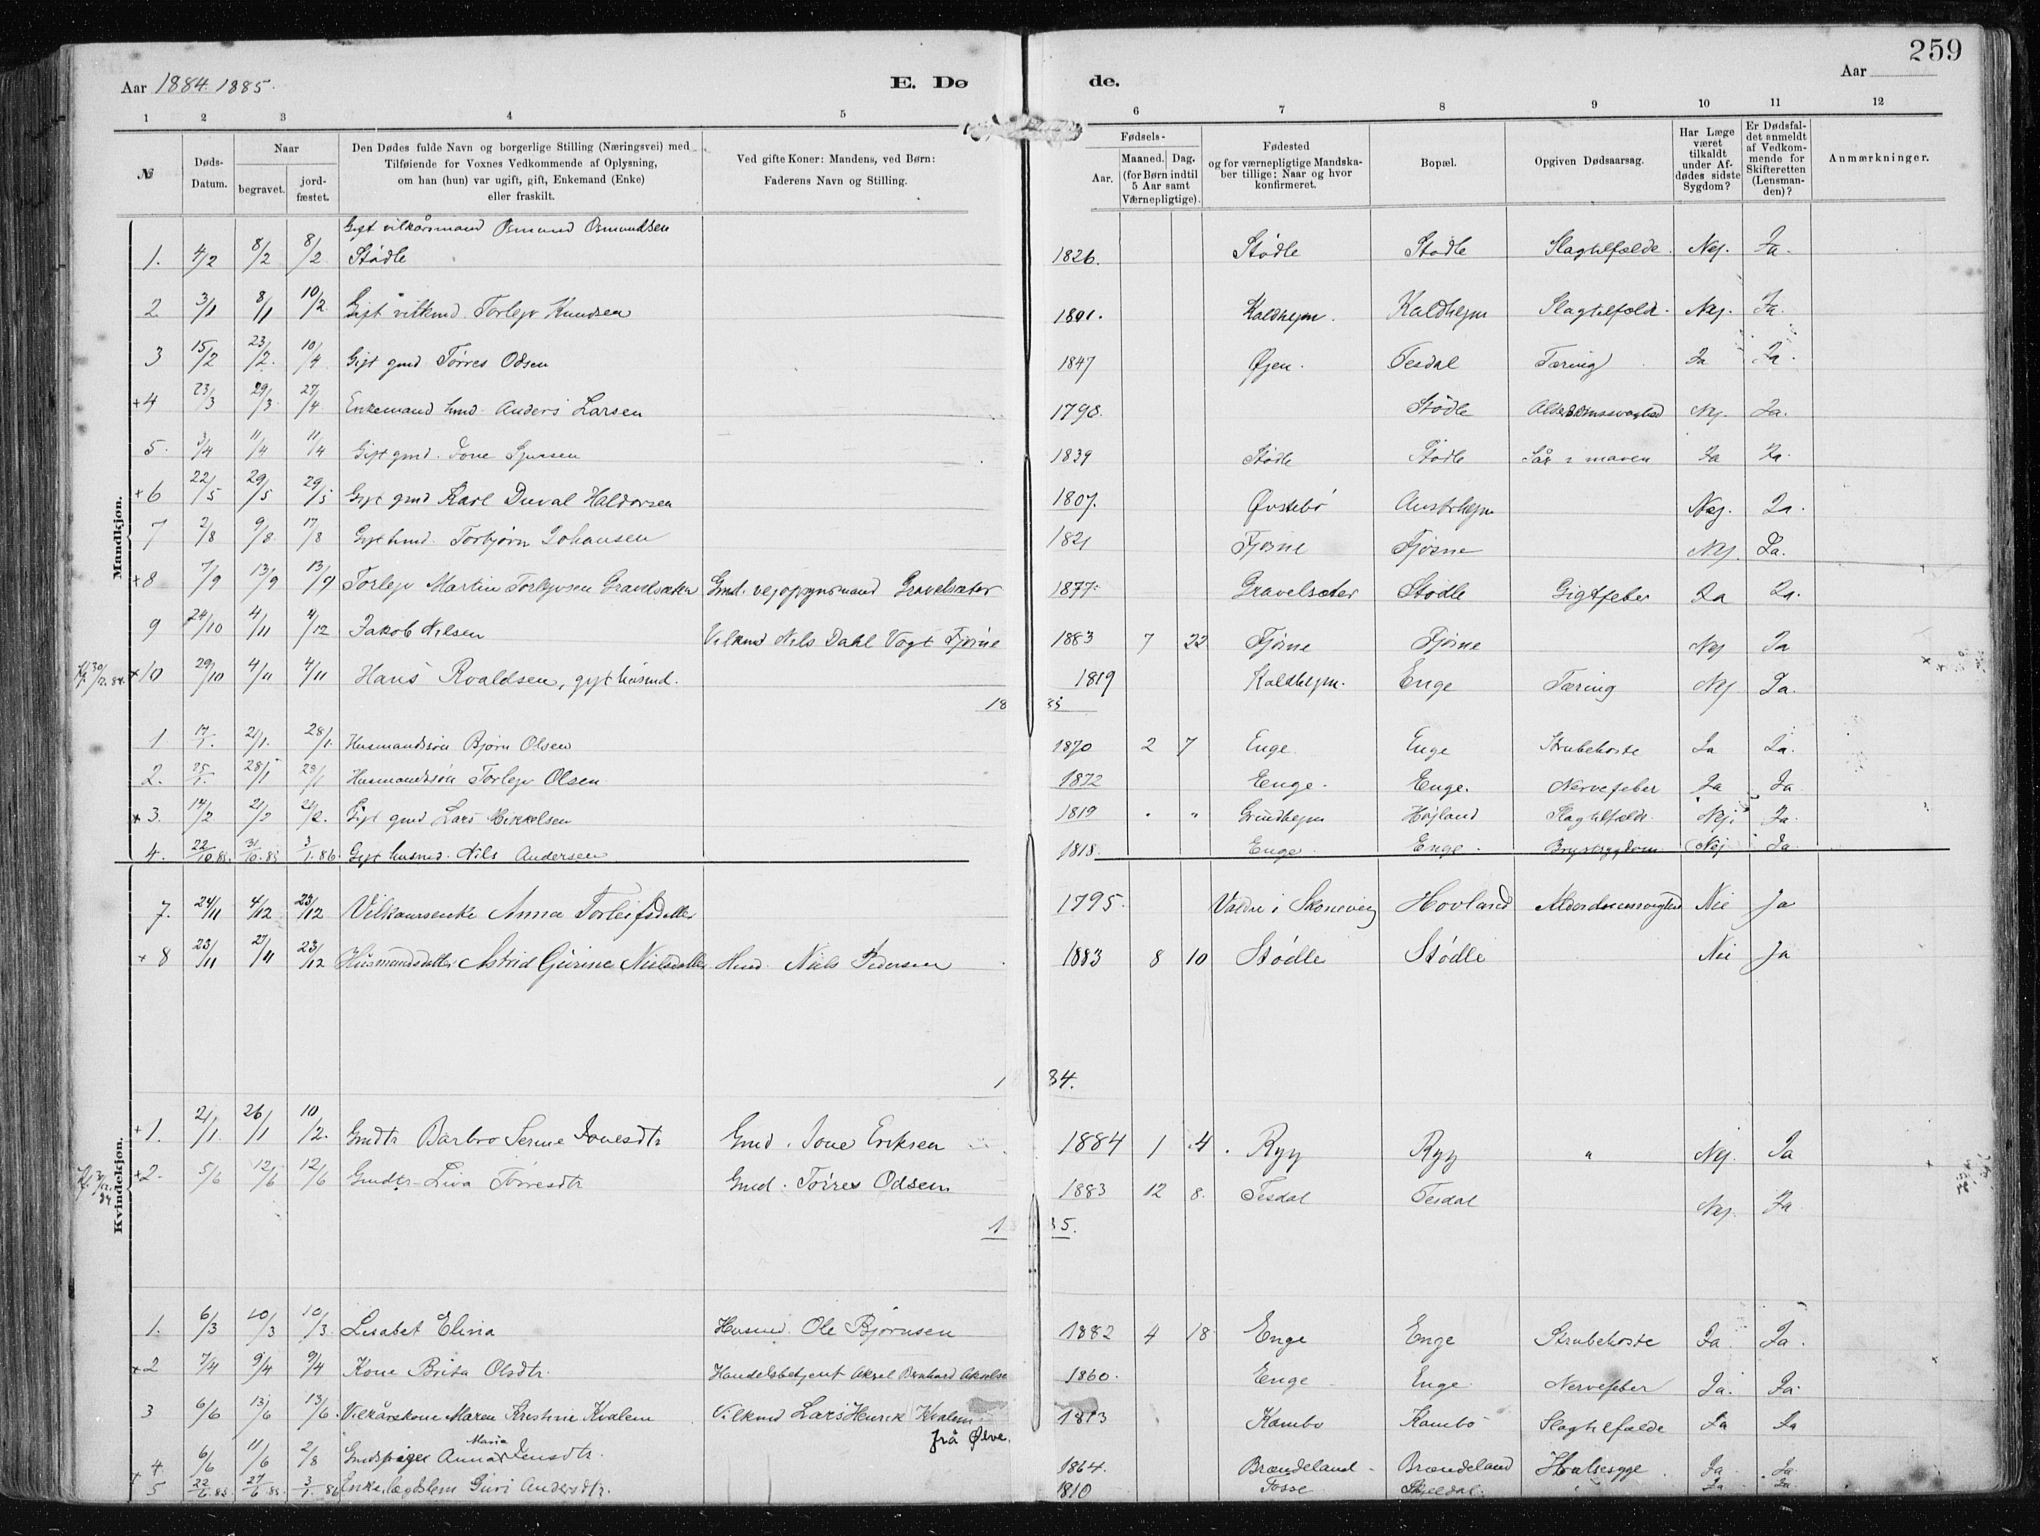 259
Aar 1884. 1885.
E. Dø de.
Aar
1 2 3 4 5 6 7 8 9 10 11 12
№
Døds-Datum.
Naar
begravet.
jord-fæstet.
Den Dødes fulde Navn og borgerlige Stilling (Næringsvei) med
Tilføiende for Voxnes Vedkommende af Oplysning,
om han (hun) var ugift, gift, Enkemand (Enke)
eller fraskilt.
Ved gifte Koner: Mandens, ved Børn:
Faderens Navn og Stilling.
Fødsels-
Aar.
Maaned. Dag.
(for Børn indtil
5 Aar samt
Værnepligtige).
Fødested
og for værnepligtige Mandska-
ber tillige: Naar og hvor
konfirmeret.
Bopæl.
Opgiven Dødsaarsag.
Har Læge
været
tilkaldt
under Af-
dødes sidste
Sygdom?
Er Dødsfal-
det anmeldt
af Vedkom-
mende for
Skifteretten
(Lensman-
den)?
Anmærkninger.
Mandkjøn.
Gift vilkårsmand Osmund Osmundsen
1. 4/2 8/2 8/2 Stødle 1826. Stødle Stødle Slagtilfælde. Nej. Ja.
2 3/1 8/1 10/2 Gift vilkmd. Torlejv Knudsen 1801. Kaldhejm. Kaldhejm Slagtilfæld. Nej. Ja.
3 15/2 23/2. 10/4 Gift gmd. Tørres Odsen 1847 Øjen. Tesdal Tæring Ja Ja.
+4 23/3 29/3 27/4 Enkemand hmd. Anders Larsen 1798. Stødle Alderdomssvaghed Nej. Ja.
5. 3/4 11/4 11/4 Gift gmd. Jone 1839 Stødle Stødle Sår i maven Ja Ja.
+6 22/5 29/5 29/5 Gift gmd Karl Duval Haldorsen 1807. Øvstebø Austrhejm Nej. Ja.
7 2/8 9/8 17/8 Gift hmd. Torbjørn Johansen 1821 Fjøsne Fjøsne Nej. Ja.
+8 7/9 13/9 13/9 Torlejv Martin Torlejvsen Gravelsæter Gmd. vejopsynsmand Gravelsæter 1877. Gravelsæter Stødle Gigtfeber Ja Ja.
9 24/10 4/11 4/12 Jakob Nilsen Vilkmd Nils Dahl Vogt Fjøsne 1883 7 22 Fjøsne Fjøsne Nej Ja
+10 29/10 4/11 4/11 Hans Roaldsen, gift husmd. 1819 Kaldhejm. Enge Tæring Nej Ja.
18 85
1 17/1. 21/1. 28/1. Husmandssøn Bjørn Olsen 1870 2 7 Enge. Enge Strubehoste Ja Ja.
2. 25/1. 28/1 29/1 Husmandssøn Torlejv Olsen. 1872 Eenge. Enge. Nervefeber Ja Ja
+3. 14/2 21/2 21/2. Gift gmd Lars Mikkelsen 1819 " " Grindhejm Højland Slagtilfæld. Nej. Ja.
4. 22/10 85. 31/10. 85 3/1.86. Gift husmd. Nils Andersen 1818. Enge Enge. Brystsygdom Nej Ja
7. 24/11 4/12 23/12 Vilkaarsenke Anna Torleifsdatter 1795. i Skonevig Hovland Alderdomssvaghed Nei Ja
+8 23/11 27/11 23/12 Husmandsdatter Astrid Gurine Nielsdatter Hmd. Niels Pedersen 1883 8 10 Stødle Stødle Nei Ja
84.
Kvindekjøn.
+1. 21/1. 26/1 10/2. Gmdtr Barbro Serine Jonesdtr Gmd. Jone Eriksen 1884 1 4. Ryg Ryg " Nej. Ja
+2. 5/6 12/6 12/6 Gmdtr Liva Tørresdtr Gmd. Tørres Odsen 1883 12 8. Tesdal Tesdal Nej. Ja.
85.
1. 6/3 10/3 10/3. Lisabet Elina Husmd. Ole Bjørnsen 1882 4 18 Enge Enge Strubehoste Ja. Ja.
+2 7/4 9/4 9/4 Kone Brita Olsdtr. Handelsbetjent Aksel Bernhard 1860. Enge Enge. Nervefeber Ja. Ja.
3 6/6 13/6 13/6. Vilkårskone Maren Kristine Kvalem Vilkmd Lars Henrik Kvalem 1813 Kambo Kambo Slagtilfælde Ja Ja
frå Ølve.
4 6/6 11/6 2/8 Gmdspige Anna Maria Jensdtr. 1864. Brændeland Brændeland Halssyge Ja. Ja
+5 22/6.85 27/6 85. 3/1. 86 Enke lægdslem Guri Andersdtr. 1810 Fosse Skjeldal. " Ja Ja